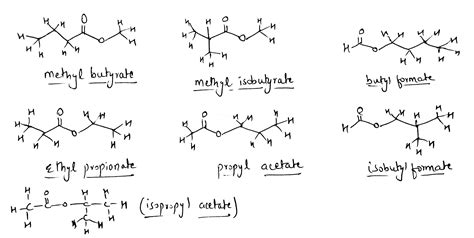 methyl butyrate
methyl isobutyrate
butyl formate
Ethyl propionate
propyl acetate
isobutyl formate
(isopropyl acetate)